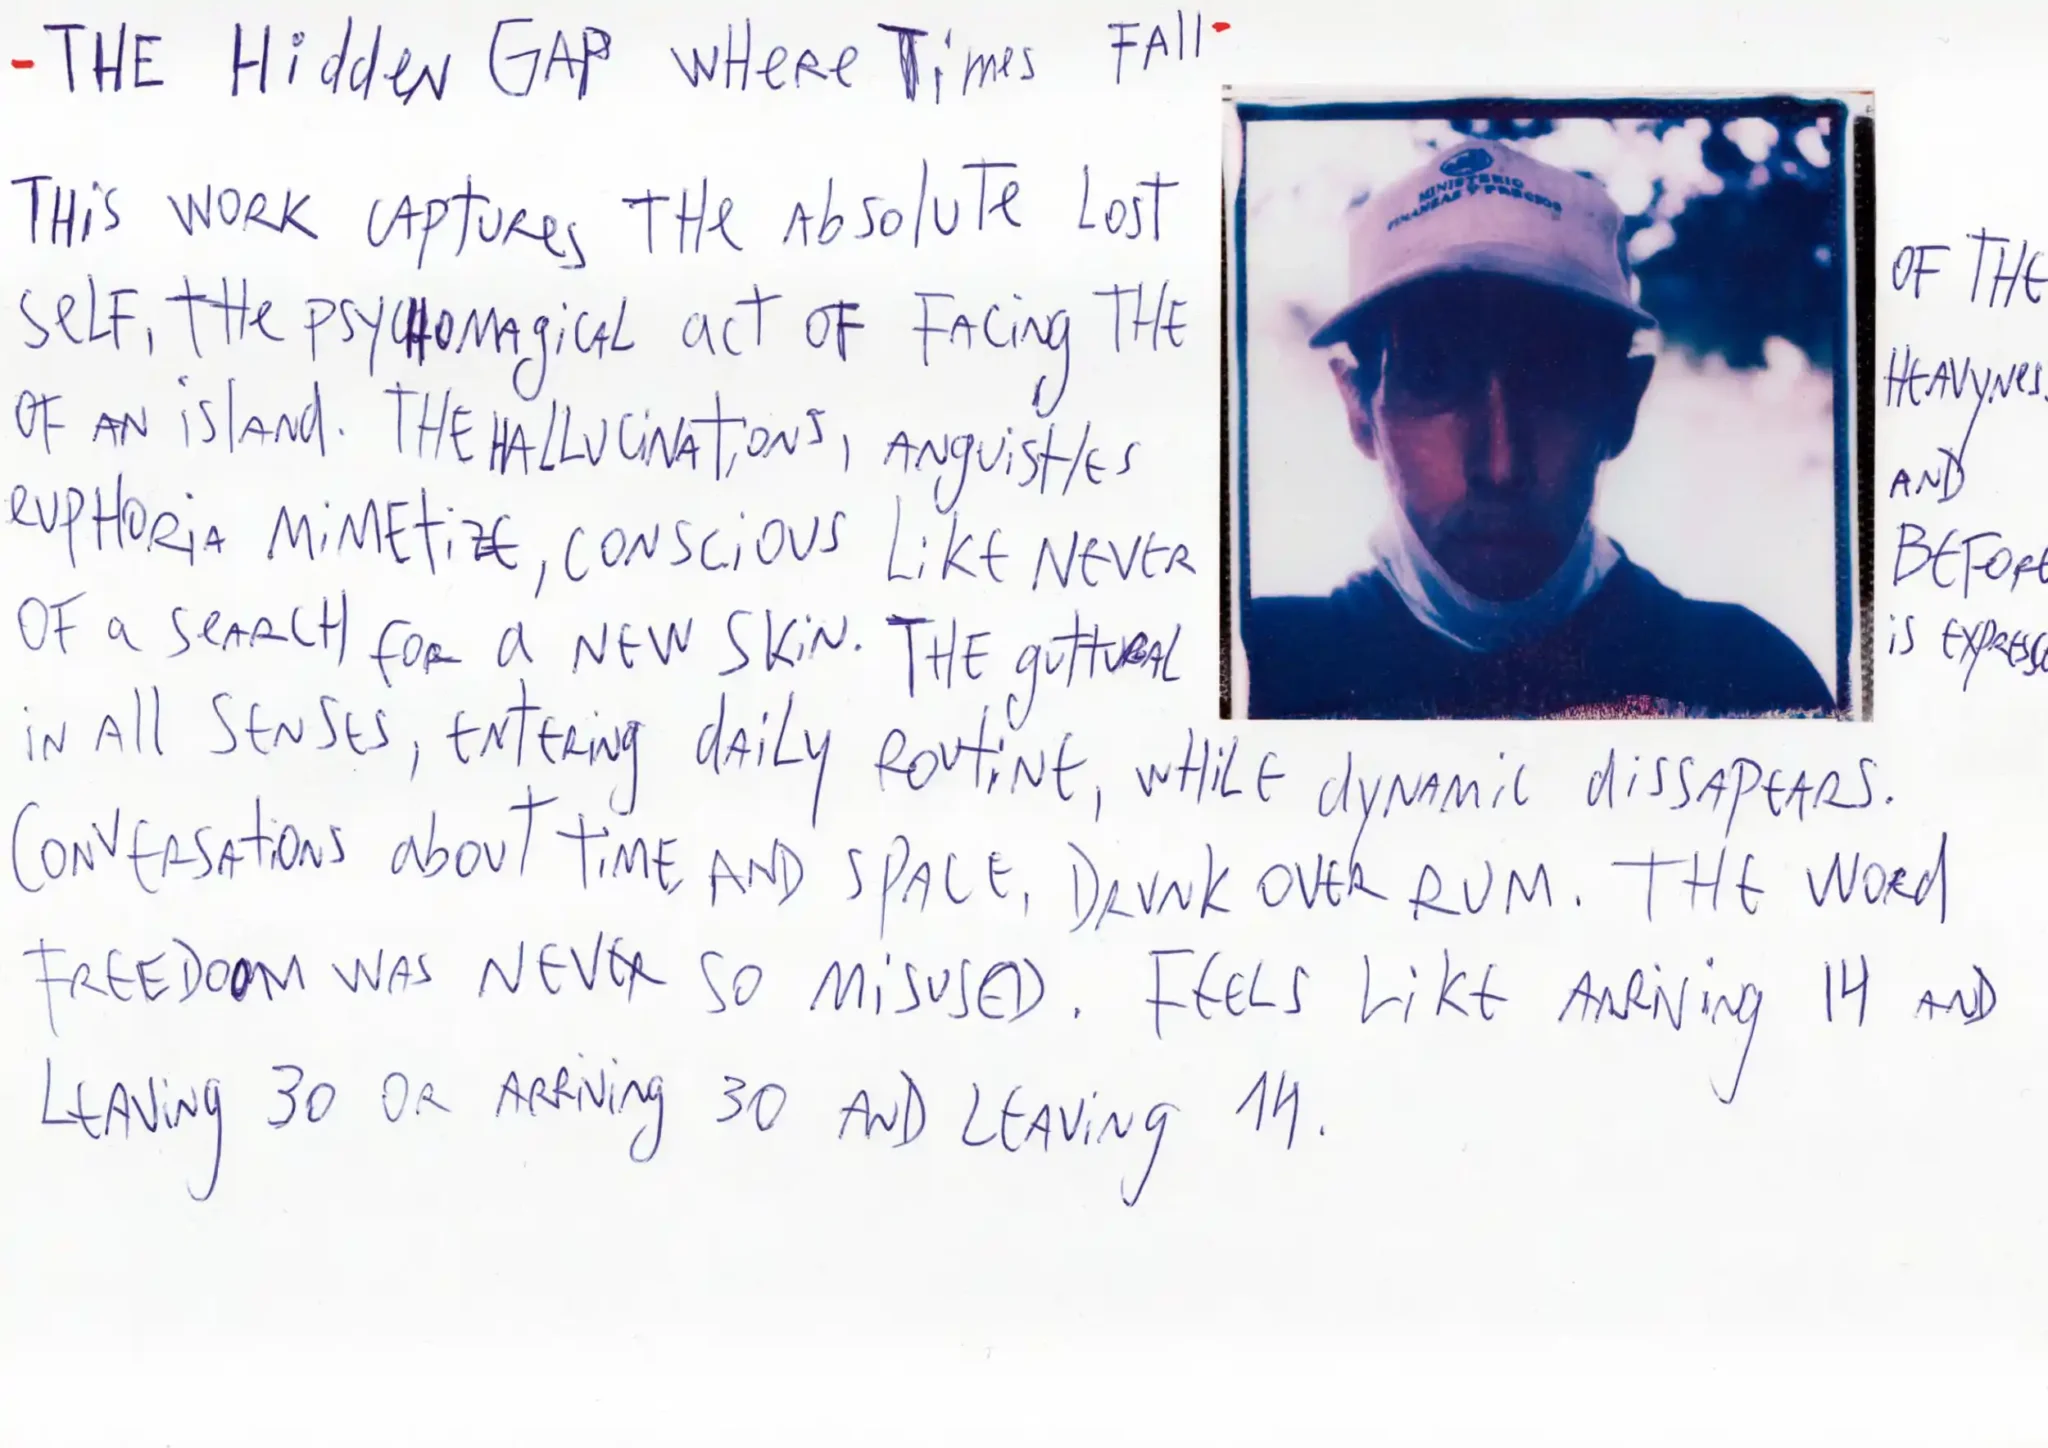 -THE Hidden GAP WHERE Times FAll-
THis WORK CAPTURES THE Absolute Lost OF THE
SELF, THE PSYCHOMAGICAL act OF FACING THE HEAVYNES
OF AN island. THE HALLUCINATIONS, ANGUISHES AND
EUPHORIA MiMEtiZE, CONSCIOUS LIKE NEVER BEFORE
OF a SEARCH FOR a NEW SKIN. THE guttURAL is EXPRESS
iN All SENSES, ENTERING dAiLY ROUTINE, WHILE dYNAMIC diSSAPEARS.
CONVERSATIONS about TiME AND SPACE, DRUNK OVER RUM. THE WORd
FREEDOOM WAS NEVER SO MISUSED. FEELS LiKE ARRIVING 14 AND
LEAVING 30 OR ARRIVING 30 AND LEAVING 14.
MINISTERIO
FINANZAS Y PRECIOS